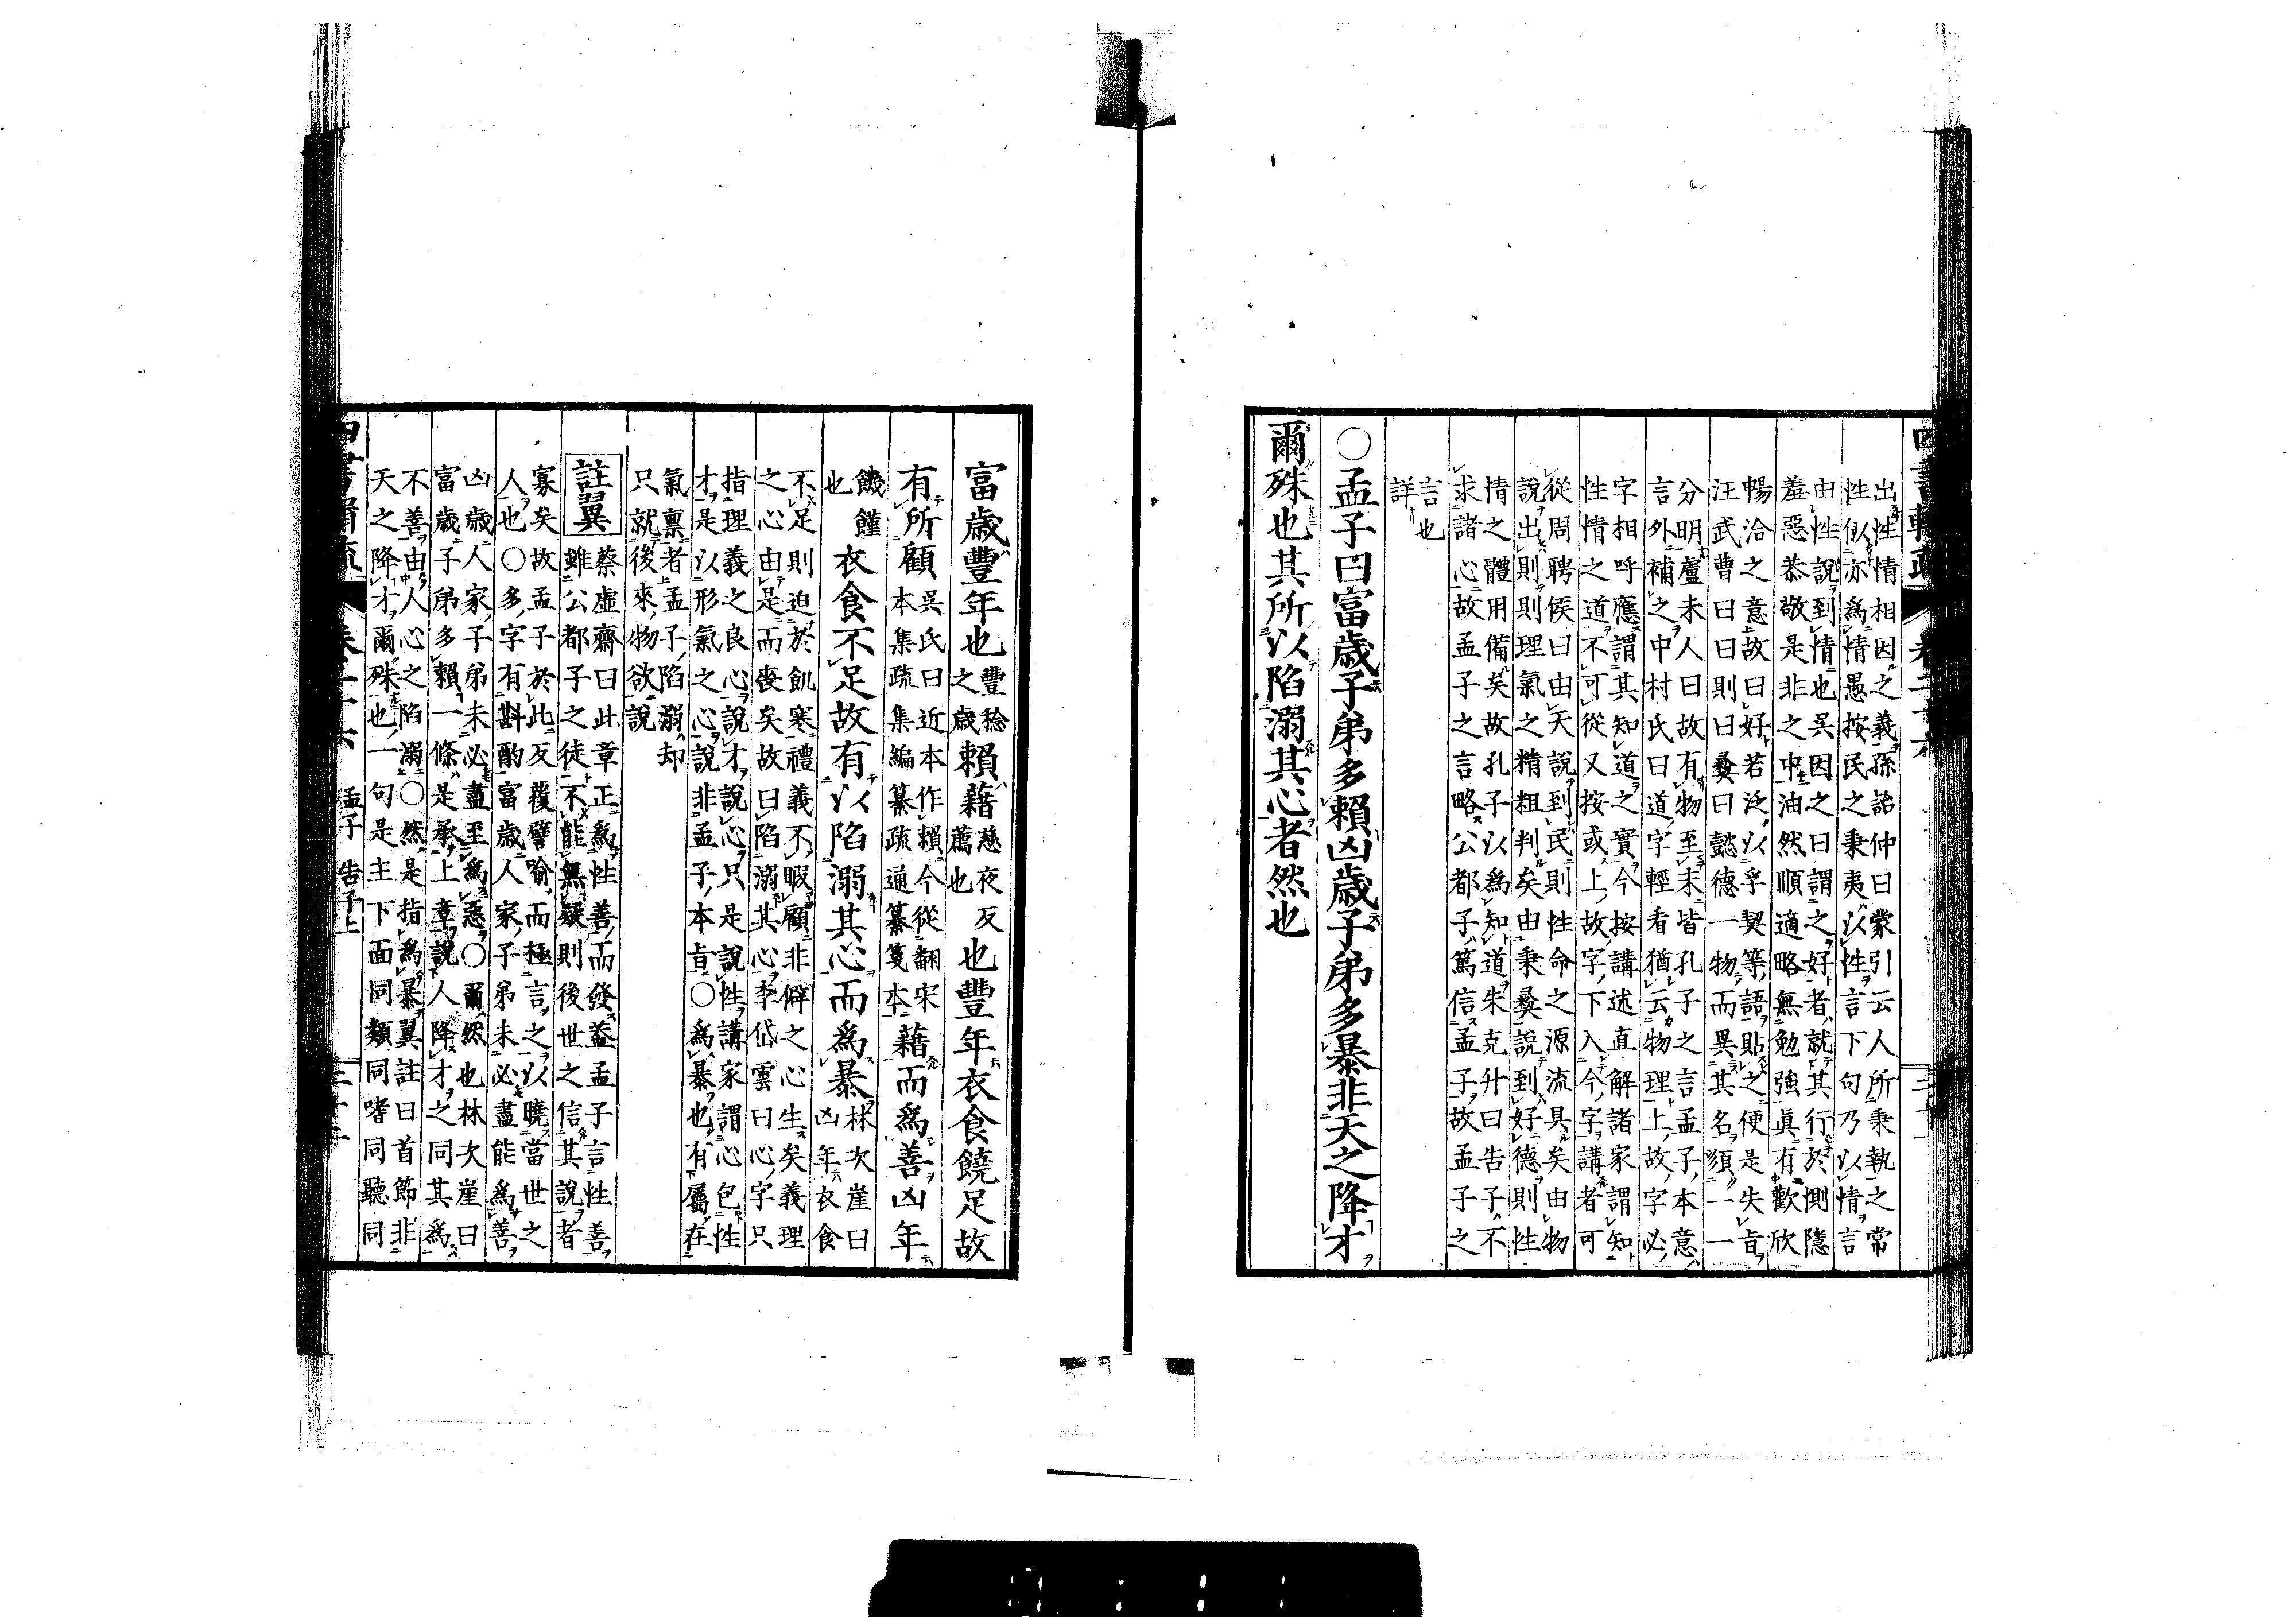 出性情相因之義孫詒仲曰蒙引云人所秉執之常
性似亦爲情愚按民之秉夷以性言下句乃以情言
由性說到情也吳因之曰謂之好者就其行於惻隱
羞惡恭敬是非之中油然順適略無勉強眞有歡欣
暢洽之意故曰好若泛以孚契等語貼之便是失旨
汪武曹曰曰則曰彝曰懿德一物而異其名須一一
分明盧未人曰故有物至末皆孔子之言孟子本意
言外補之中村氏曰道字輕看猶云物理上故字必
字相呼應謂其知道之實今按講述直解諸家謂知
性情之道不可從又按或上故字下入今字講者可
從周聘侯曰由天說到民則性命之源流具矣由物
說出則則理氣之精粗判矣由秉彝說到好德則性
情之體用備矣故孔子以爲知道朱克升曰告子不
求諸心故孟子之言略公都子篤信孟子故孟子之
言也
詳
○孟子曰富歲子弟多賴凶歲子弟多暴非天之降才
爾殊也其所以陷溺其心者然也
富歲豐年也豐稔之歲賴藉慈夜反薦也也豐年衣食饒足故
有所顧吳氏曰近本作賴今從翻宋本集疏集編纂疏通纂箋本藉而爲善凶年
饑饉也衣食不足故有以陷溺其心而爲暴林次崖曰凶年衣食
不足則迫於飢寒禮義不暇顧非僻之心生矣義理
之心由是而喪矣故曰陷溺其心李岱雲曰心字只
指理義之良心說才說心只是說性講家謂心包性
才是以形氣之心說非孟子本旨○爲暴也有屬在
氣禀者孟子陷溺却
只就後來物欲說
註翼 蔡虛齋曰此章正爲性善而發蓋孟子言性善
雖公都子之徒不能無疑則後世之信其說者
寡矣故孟子於此反覆譬喻而極言之以曉當世之
人也○多字有斟酌富歲人家子弟未必盡能爲善
凶歲人家子弟未必盡至爲惡○爾然也林次崖曰
富歲子弟多賴一條是承上章說人降才之同其爲
不善由人心之陷溺○然是指爲暴翼註曰首節非
天之降才爾殊也一句是主下面同類同嗜同聽同
孟子 告子上